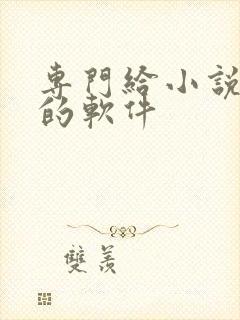 專門給小說
的軟件
雙羨